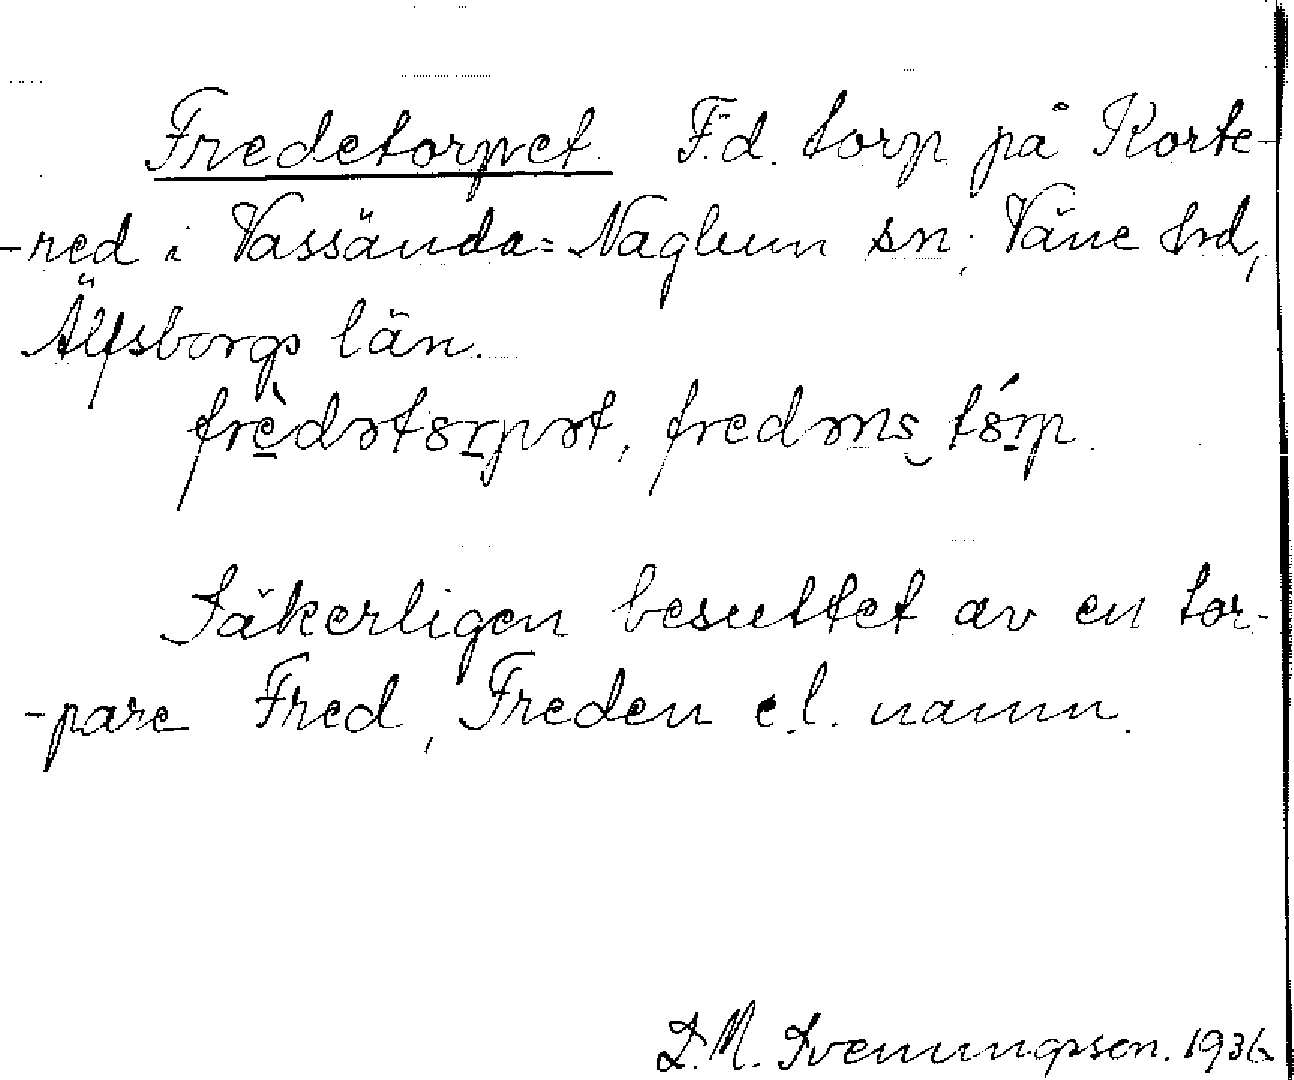 Fredetorpet. F.d. torp på Korte-
-red i Vassända=Naglum sn; Väne hd,
Älfsborgs län.
frèdətørpət, fredəns tórp.
Säkerligen besuttet av en tor-
-pare Fred, Freden e.l. namn.
D.M. Svenningsson. 1936